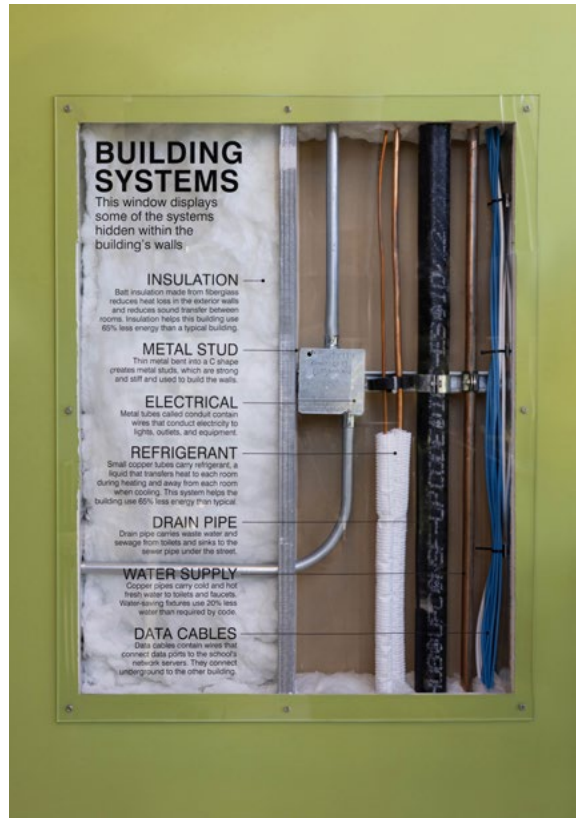 BUILDING
SYSTEMS
This window displays
some of the systems
hidden within the
building's walls
INSULATION
Batt insulation made from fiberglass
reduces heat loss in the exterior walls
and reduces sound transfer between
rooms. Insulation helps this building use
65% less energy than a typical building.
METAL STUD
Thin metal bent into a C shape
creates metal studs, which are strong
and stiff and used to build the walls.
ELECTRICAL
Metal tubes called conduit contain
wires that conduct electricity to
lights, outlets, and equipment.
REFRIGERANT
Small copper tubes carry refrigerant, a
liquid that transfers heat to each room
during heating and away from each room
when cooling. This system helps the
building use 65% less energy than typical.
DRAIN PIPE
Drain pipe carries waste water and
sewage from toilets and sinks to the
sewer pipe under the street.
WATER SUPPLY
Copper pipes carry cold and hot
fresh water to toilets and faucets.
Water-saving fixtures use 20% less
water than required by code.
DATA CABLES
Data cables contain wires that
connect data ports to the school's
network servers. They connect
underground to the other building.